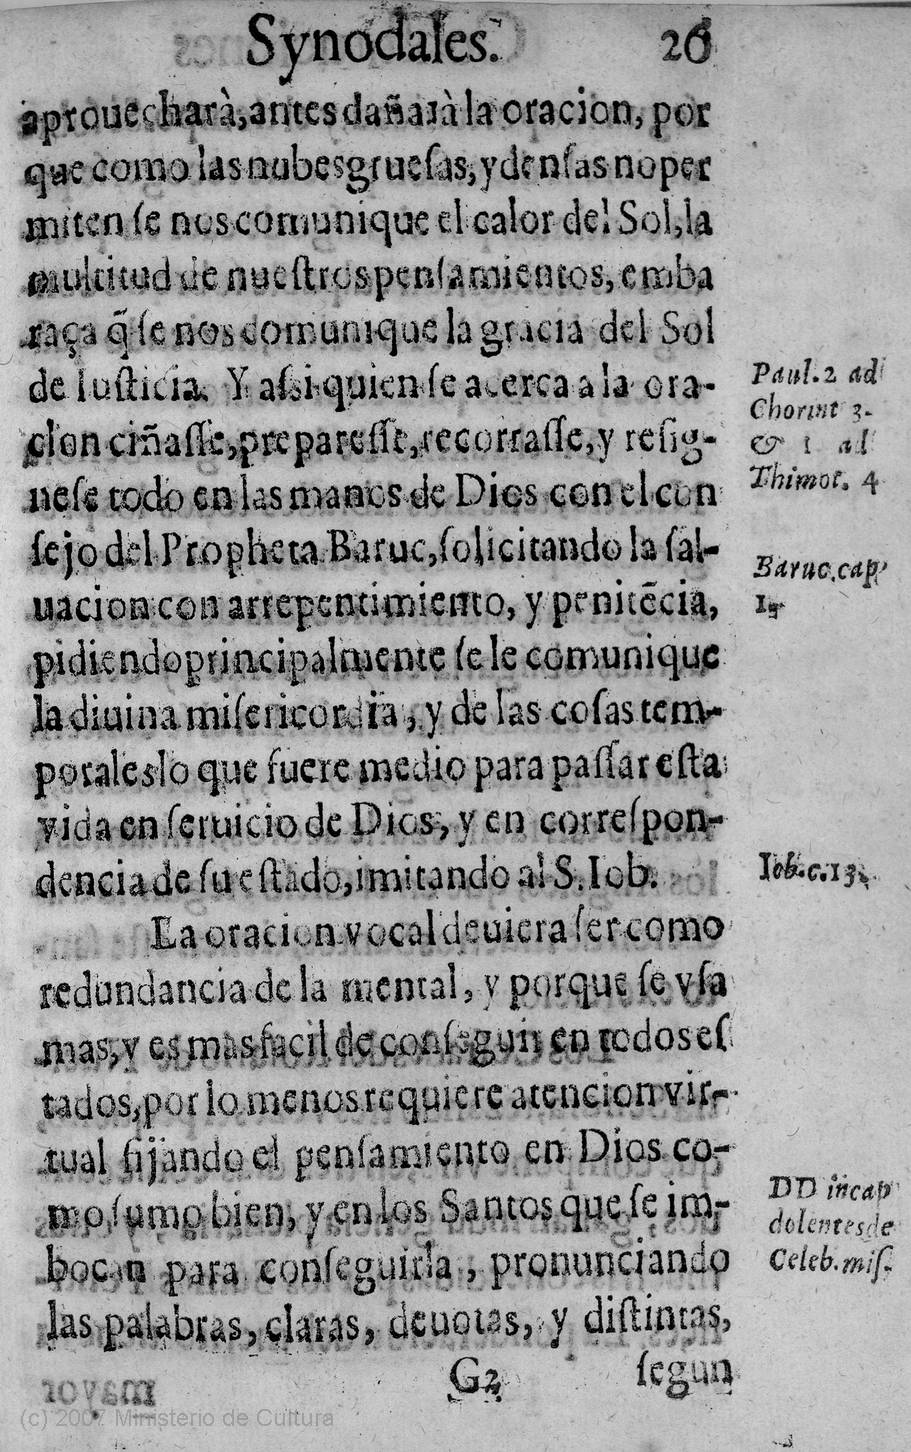 Synodales. 26
aprouecharà, antes dañarà la oracion, por
que como las nubes grueſas, y denſas no per
miten ſe nos comunique el calor del Sol, la
multitud de nueſtros penſamientos, emba
raça q̃ ſe nos comunique la gracia del Sol
de Iuſticia. Y aſsi quien ſe acerca a la ora-
cion ciñaſſe, prepareſſe, recorraſſe, y reſig-
neſe todo en las manos de Dios con el con
ſejo del Propheta Baruc, ſolicitando la ſal-
uacion con arrepentimiento, y penitēcia,
pidiendo principalmente ſe le comunique
la diuina miſericordia, y de las coſas tem-
porales lo que fuere medio para paſſar eſta
vida en ſeruicio de Dios, y en correſpon-
dencia de ſu eſtado, imitando al S. Iob.
La oracion vocal deuiera ſer como
redundancia de la mental, y porque ſe vſa
mas, y es mas facil de conſeguir en todos eſ
tados, por lo menos requiere atencion vir-
tual fijando el penſamiento en Dios co-
mo ſumo bien, y en los Santos que ſe im-
bocan para conſeguirla, pronunciando
las palabras, claras, deuotas, y diſtintas,
G2 ſegun
Paul. 2 ad
Chorint 3.
& 1 ad
Thimot. 4
Baruc. cap
1.
Iob. c. 13.
DD in cap
dolentes de
Celeb. miſ.
(c) 2007 Ministerio de Cultura